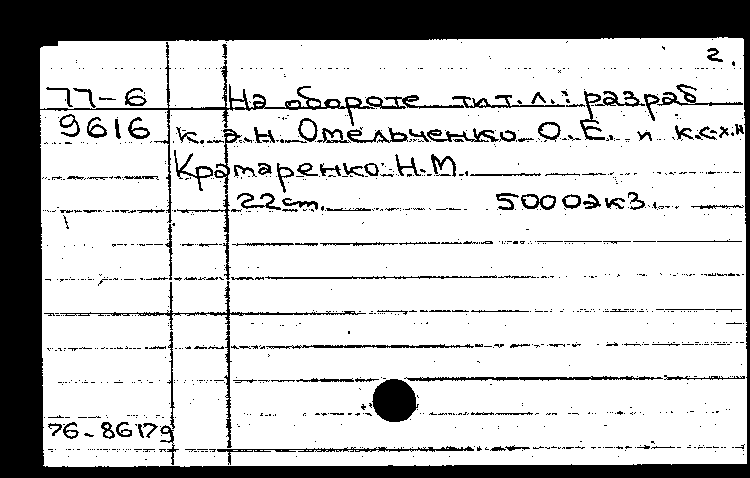 2.
77-6 На обороте тит. л.: разраб
9616 к. э. н. Омельченко О. Е. и к.с-х.н
Кратаренко Н.М.
22 см. 5000 экз.
76-86179